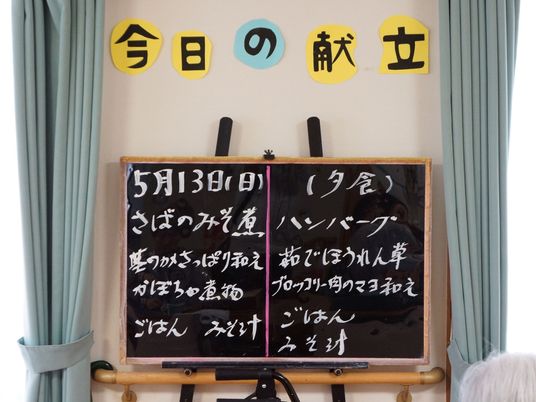 今日の献立
5月13日(日)
さばのみそ煮
さっぱり和え
かぼちゃ煮物
ごはん みそ汁
(夕食)
ハンバーグ
茹でほうれん草
ブロッコリー のマヨ和え
ごはん
みそ汁